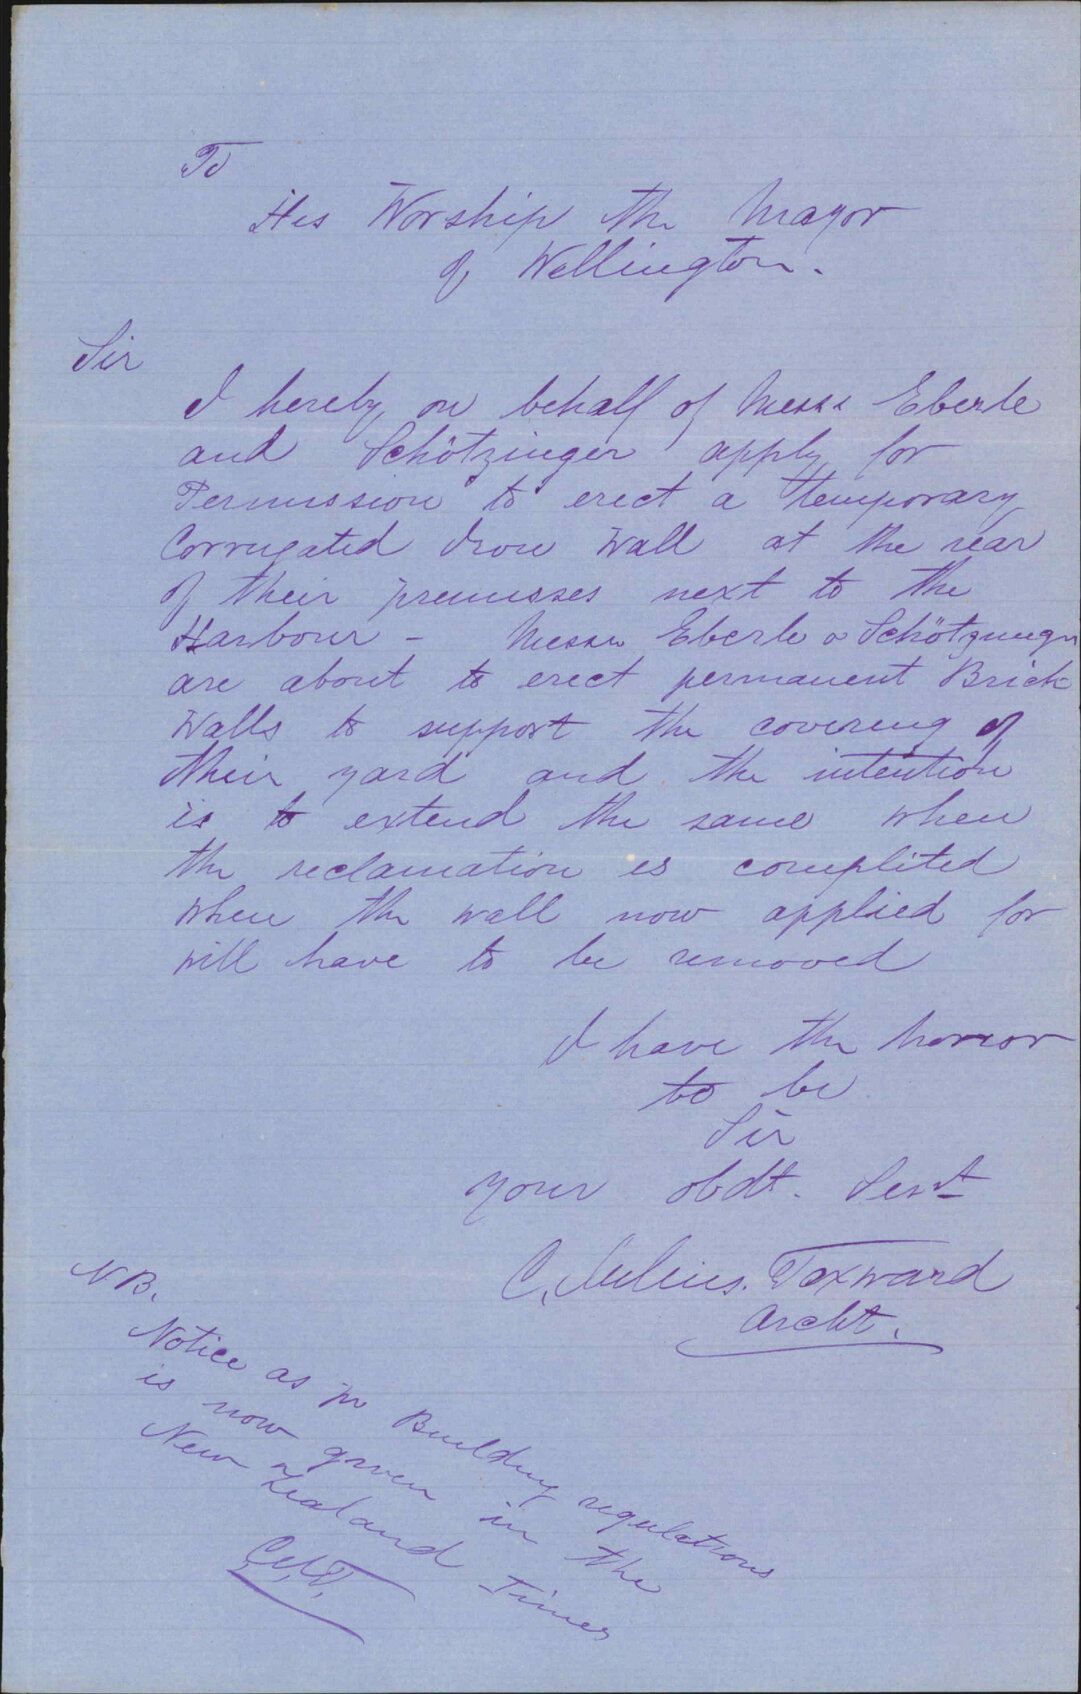 To
His Worship the Mayor
of Wellington.
Sir
I hereby on behalf of Messs Eberle
and Schötzinger apply for
Permission to erect a temporary
Corrugated Iron Wall at the rear
of their premisses next to the
Harbour - Messrs Eberle & Schötzinger
are about to erect permanent Brick
Walls to support the covering of
their yard and the intention
is to extend the same when
the reclamation is complited
when the wall now applied for
will have to be removed
I have the honor
to be
Sir
your obdt. Servt
C. Julius. Toxward
Archt.
NB.
Notice as pr Building regulations
is now given in the
New Zealand Times
C.J.T.